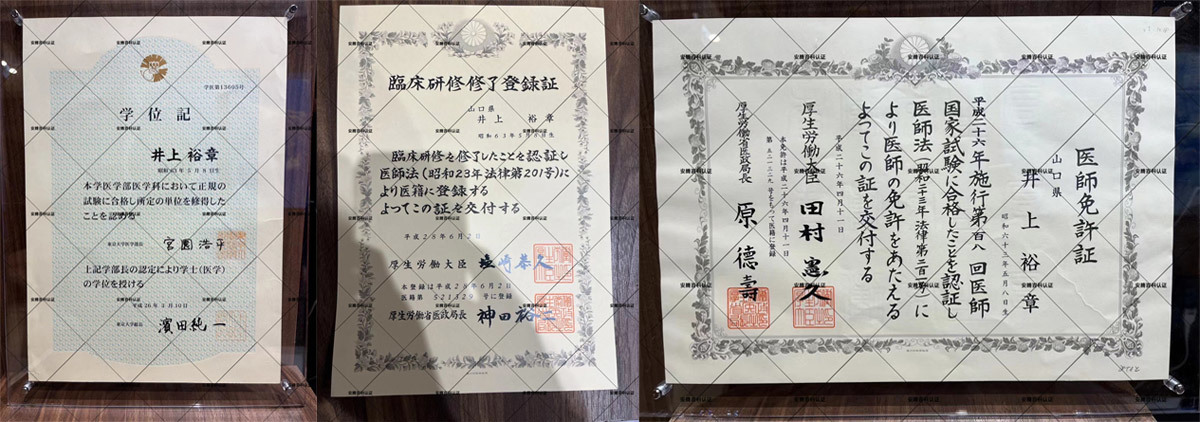 学医第13693号
学位記
井上裕章
昭和63年5月8日生
本学医学部医学科において正規の
試験に合格し所定の単位を修得した
ことを認める
東京大学医学部長
宮園浩平
上記学部長の認定により学士(医学)
の学位を授ける
平成26年3月10日
東京大学総長
濱田純一
臨床研修修了登録証
山口県
井上 裕章
昭和63年5月8日生
臨床研修を修了したことを認証し
医師法(昭和23年法律第201号)に
より医籍に登録する
よってこの証を交付する
平成28年6月2日
厚生労働大臣 塩崎恭久
本登録は平成28年6月2日
医籍第 521329 号に登録
厚生労働省医政局長 神田裕二
医師免許証
山口県
井上裕章
昭和六十三年五月八日生
平成二十六年施行第百八回医師
国家試験に合格したことを認証し
医師法(昭和二十三年法律第二百一号)に
より医師の免許をあたえる
よってこの証を交付する
平成二十六年四月十一日
厚生労働大臣 田村憲久
本免許は平成二十六年四月十一日
第五二一三二九号をもって医籍に登録
厚生労働省医政局長 原德壽